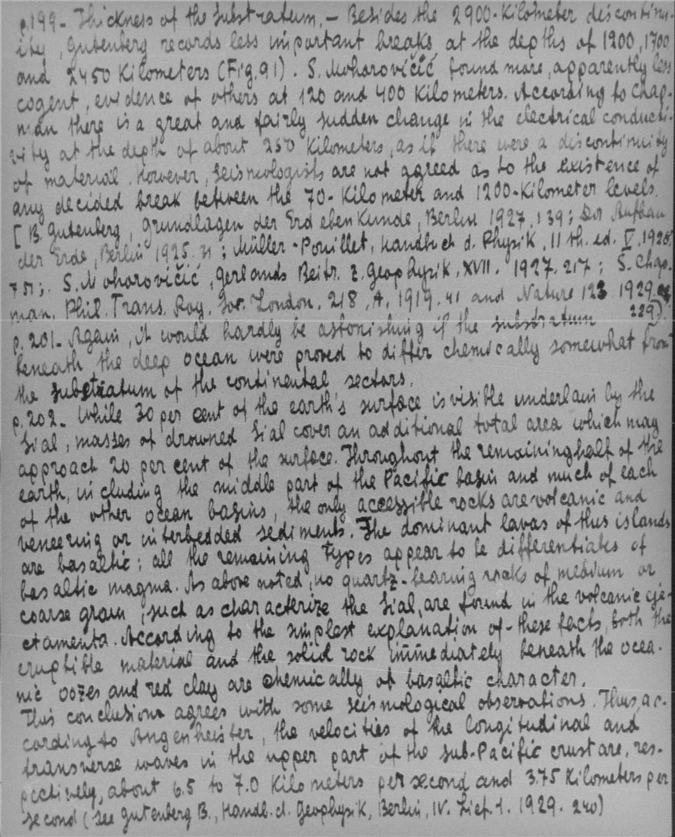 p.199- Thickness of the Substratum.- Besides the 2900-Kilometer discontinu-
ity, Gutenberg records less important breaks at the depths of 1200, 1700
and 2450 Kilometers (Fig.91). S. Mohorovičić found more, apparently less
cogent, evidence of others at 120 and 400 Kilometers. According to Chap-
man there is a great and fairly sudden change in the electrical conducti-
vity at the depth of about 250 Kilometers, as if there were a discontinuity
of material. However, seismologists are not agreed as to the existence of
any decided break between the 70-Kilometer and 1200-Kilometer levels.
[B. Gutenberg, Grundlagen der Erdebenkunde, Berlin 1927, 139; Der Aufbau
der Erde, Berlin 1925. 31; Müller-Pouillet, Handbuch d. Physik, 11th. ed. V, 1928,
751; S. Mohorovičić, Gerlands Beitr. z. Geophyzik, XVII. 1927. 217; S. Chap-
man, Phil. Trans. Roy. Soc. London, 218, A, 1919. 41 and Nature 123 1929
229).
p. 201- Again, it would hardly be astonishing if the substratum
beneath the deep ocean were proved to differ chemically somewhat from
the substratum of the continental sectors.
p.202- While 30 per cent of the earth's surface is visible underlain by the
Sial, masses of drowned Sial cover an additional total area which may
approach 20 per cent of the surface. Throughout the remaining half of the
earth, including the middle part of the Pacific basin and much of each
of the other ocean basins, the only accessible rocks are volcanic and
veneering or interbedded sediments. The dominant lavas of this islands
are basaltic; all the remaining types appear to be differentiates of
basaltic magma. As above noted, no quartz-bearing rocks of medium or
coarse grain, such as characterize the Sial, are found in the volcanic eje-
ctamenta. According to the simplest explanation of these facts, both the
eruptible material and the solid rock immediately beneath the ocea-
nic oozes and red clay are chemically of basaltic character.
This conclusion agrees with some seismological observations. Thus, ac-
cording to Angenheister, the velocities of the longitudinal and
transverse waves in the upper part of the sub-Pacific crust are, res-
pectively, about 6.5 to 7.0 Kilometers per second and 3.75 Kilometers per
second (See Gutenberg B., Handb. d. Geophysik, Berlin, IV. Lief. 1. 1929. 240)